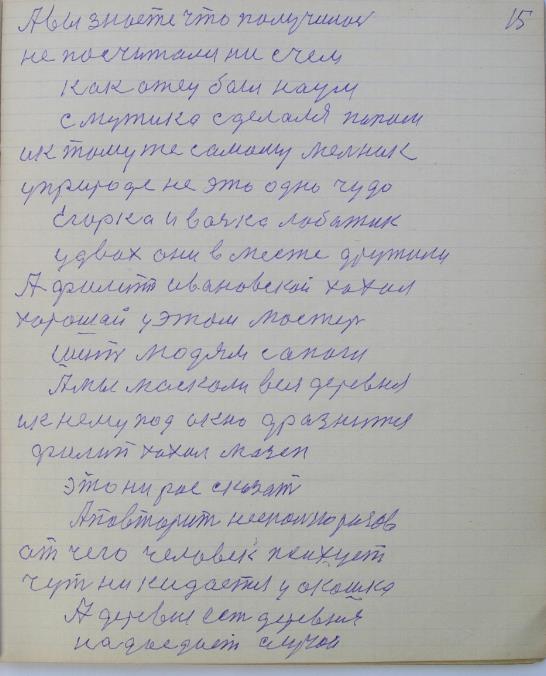 15
А вы знаете что получилос
не посчитали ни счем
как отец был наум
смутика сделаля попом
ик томуже самому мелник
уприроде не это одно чудо
Егорка и ваяка лобатик
удвох они вместе дружили
А филипп ивановской хохол
хорошай уэтом мостер
шит людям сапоги
Амы москали вся деревня
ик нему под окно дразнится
филип хохол мазеп
это ни рас сказат
Аповторит несполкоразов
от чего человек психует
чут ни кидается у окошка
А деревне ест деревня
случай